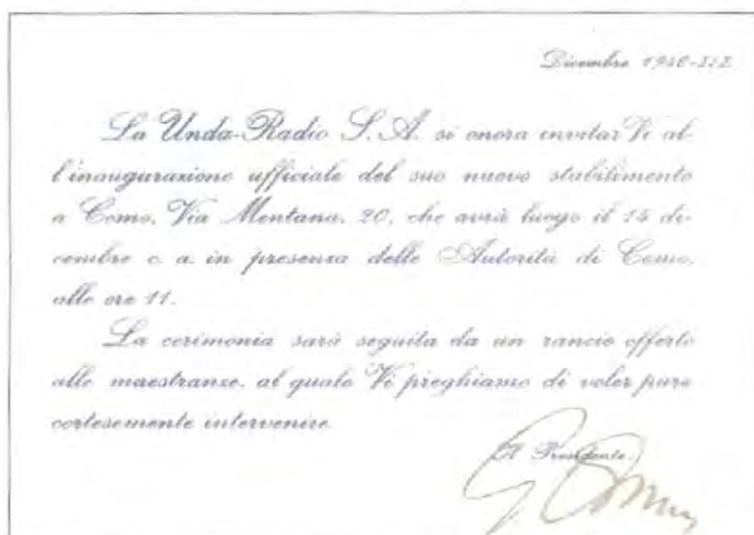 Dicembre 1940-XIX
La Unda-Radio S. A. si onora invitar Vi al-
l'inaugurazione ufficiale del suo nuovo stabilimento
a Como, Via Mentana, 20, che avrà luogo il 15 di-
cembre c. a. in presenza delle Autorità di Como,
alle ore 11.
La cerimonia sarà seguita da un rancio offerto
alle maestranze, al quale Vi preghiamo di voler pure
cortesemente intervenire.
Il Presidente.